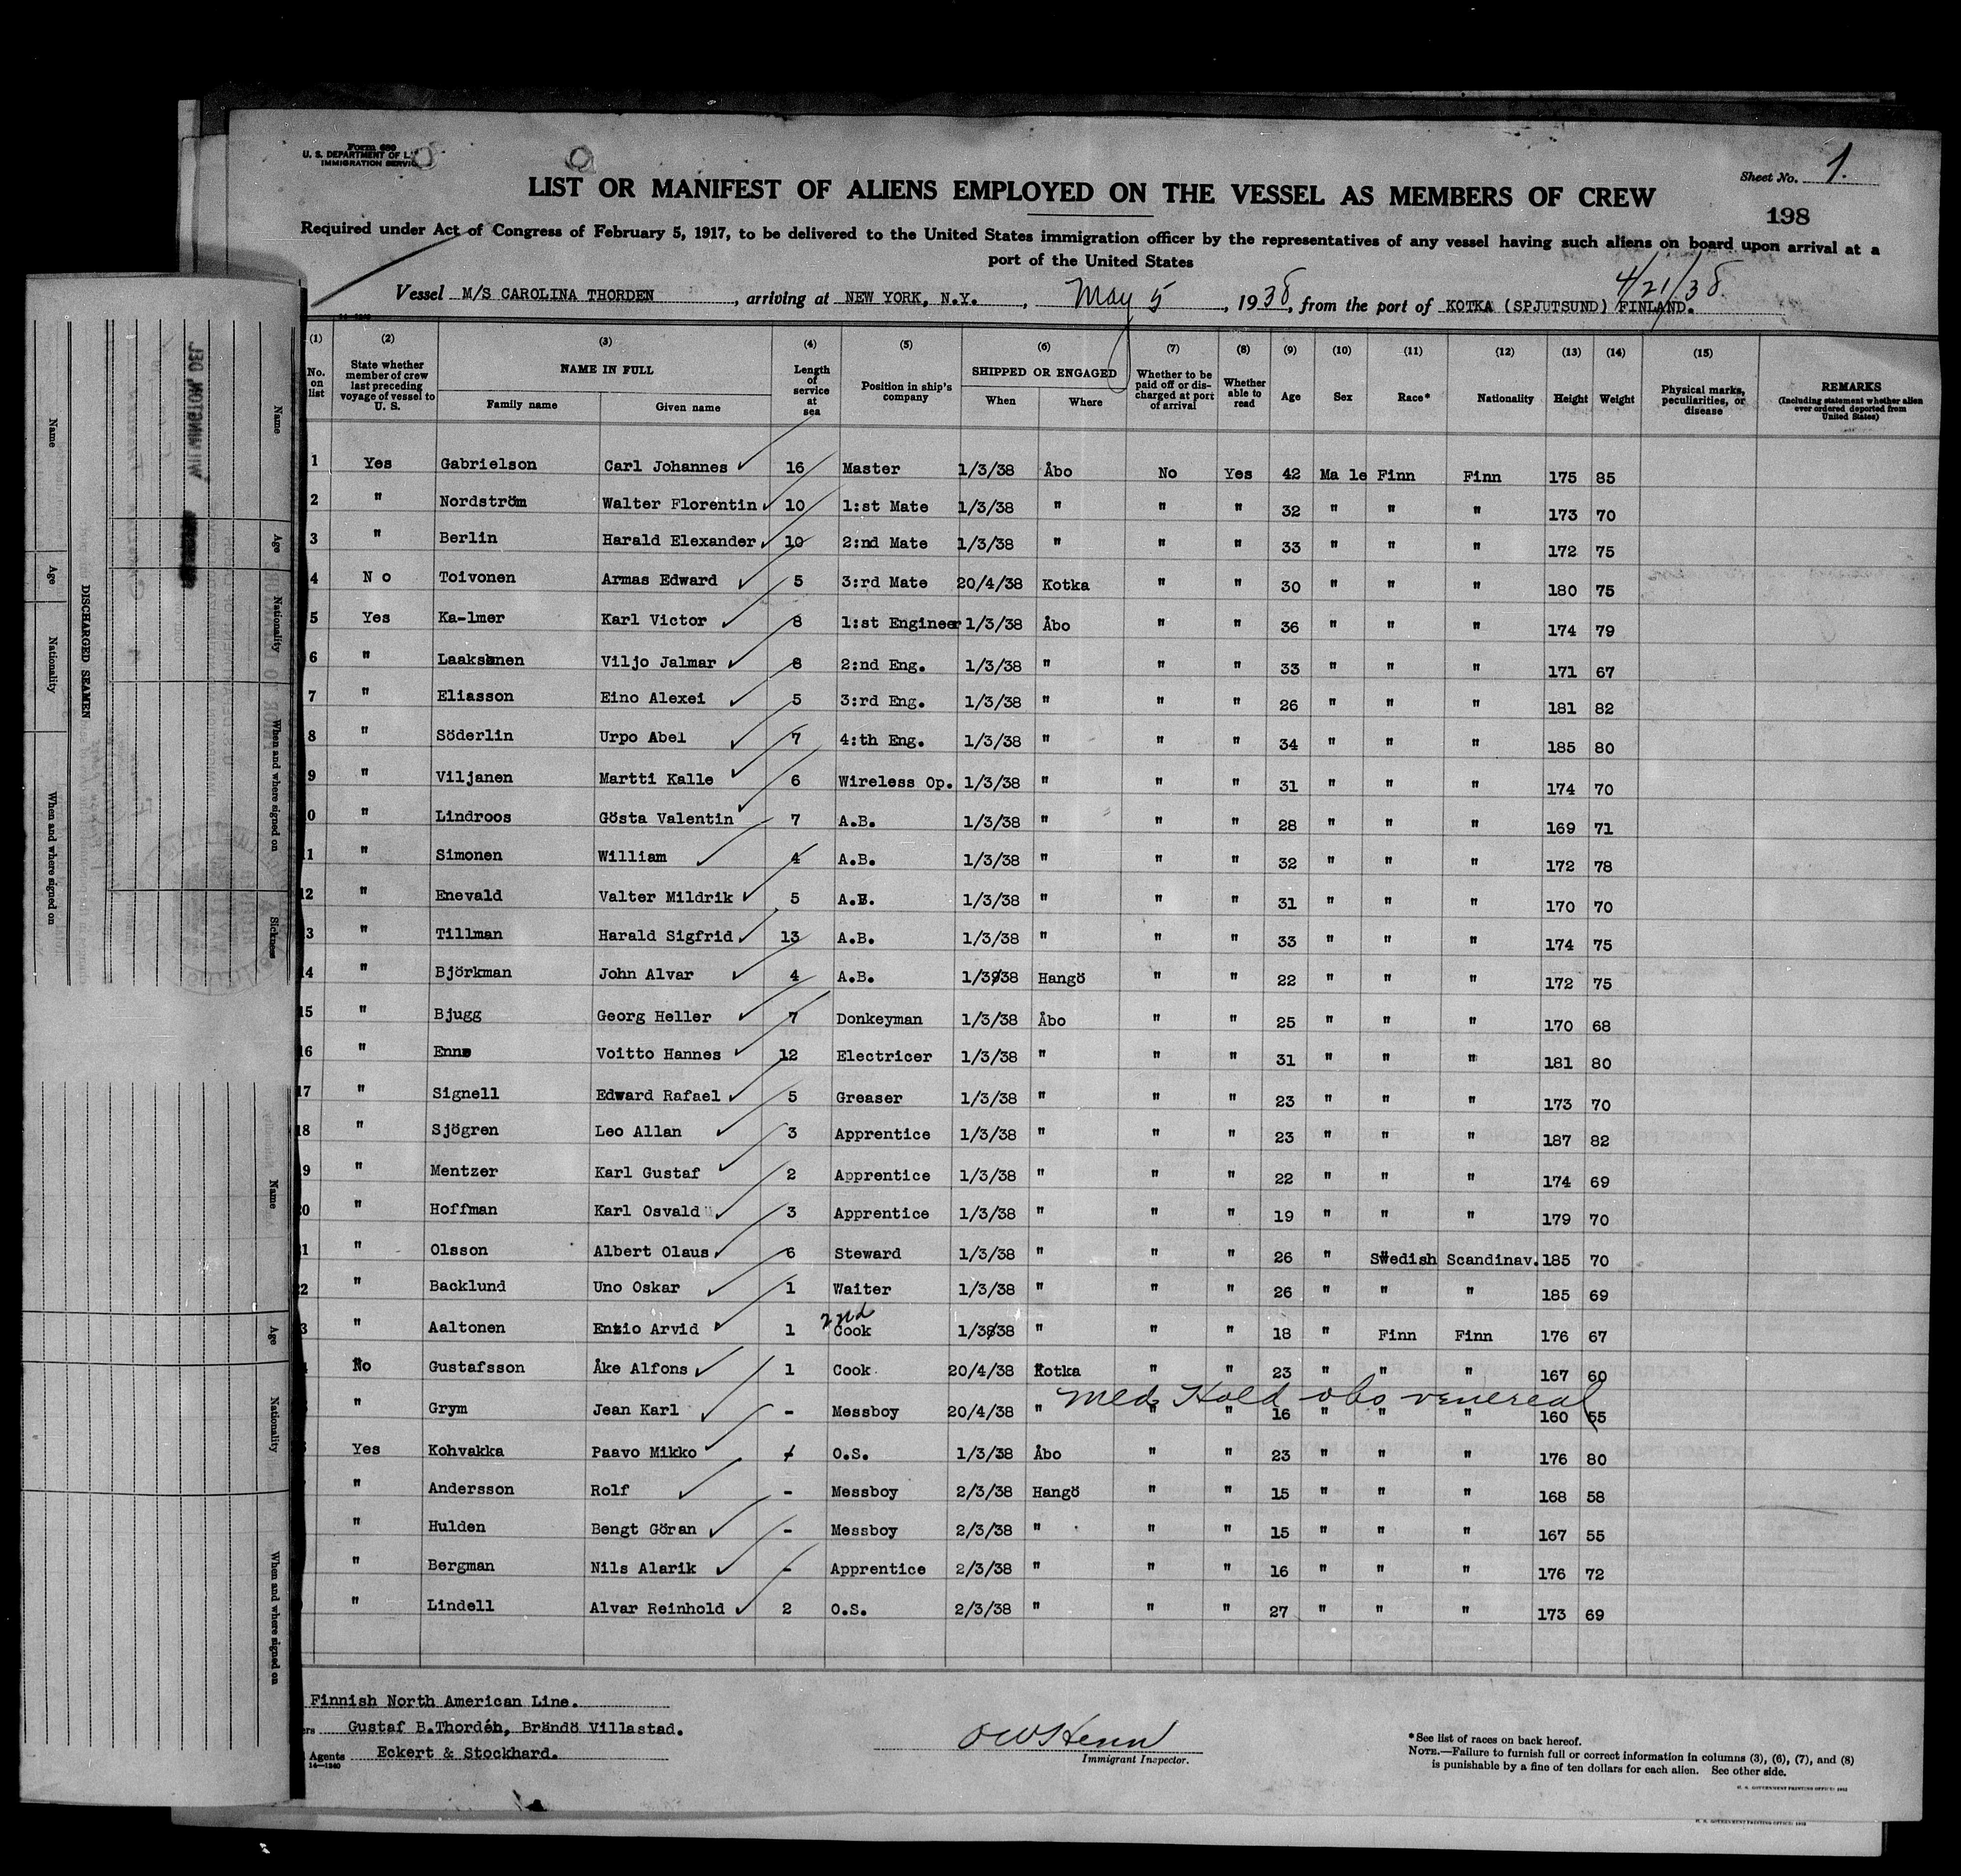 Form 689
U. S. DEPARTMENT OF L
IMMIGRATION SERVIC
Sheet No. 1.
LIST OR MANIFEST OF ALIENS EMPLOYED ON THE VESSEL AS MEMBERS OF CREW
198
Required under Act of Congress of February 5, 1917, to be delivered to the United States immigration officer by the representatives of any vessel having such aliens on board upon arrival at a
port of the United States
4/21/38
Vessel M/S CAROLINA THORDEN, arriving at NEW YORK, N.Y., May 5, 1938, from the port of KOTKA (SPJUTSUND) FINLAND.
(1) (2) (3) (4) (5) (6) (7) (8) (9) (10) (11) (12) (13) (14) (15)
No. on list State whether member of crew last preceding voyage of vessel to U. S. NAME IN FULL Family name Given name Length of service at sea Position in ship's company SHIPPED OR ENGAGED When Where Whether to be paid off or discharged at port of arrival Whether able to read Age Sex Race* Nationality Height Weight Physical marks, peculiarities, or disease REMARKS (Including statement whether alien ever ordered deported from United States)
1 Yes Gabrielson Carl Johannes 16 Master 1/3/38 Åbo No Yes 42 Ma le Finn Finn 175 85
2 " Nordström Walter Florentin 10 1:st Mate 1/3/38 " " " 32 " " " 173 70
3 " Berlin Harald Elexander 10 2:nd Mate 1/3/38 " " " 33 " " " 172 75
4 N o Toivonen Armas Edward 5 3:rd Mate 20/4/38 Kotka " " 30 " " " 180 75
5 Yes Ka-lmer Karl Victor 8 1:st Engineer 1/3/38 Åbo " " 36 " " " 174 79
6 " Laaksonen Viljo Jalmar 8 2:nd Eng. 1/3/38 " " " 33 " " " 171 67
7 " Eliasson Eino Alexei 5 3:rd Eng. 1/3/38 " " " 26 " " " 181 82
8 " Söderlin Urpo Abel 7 4:th Eng. 1/3/38 " " " 34 " " " 185 80
9 " Viljanen Martti Kalle 6 Wireless Op. 1/3/38 " " " 31 " " " 174 70
0 " Lindroos Gösta Valentin 7 A.B. 1/3/38 " " " 28 " " " 169 71
11 " Simonen William 4 A.B. 1/3/38 " " " 32 " " " 172 78
12 " Enevald Valter Mildrik 5 A.B. 1/3/38 " " " 31 " " " 170 70
3 " Tillman Harald Sigfrid 13 A.B. 1/3/38 " " " 33 " " " 174 75
14 " Björkman John Alvar 4 A.B. 1/3/38 Hangö " " 22 " " " 172 75
15 " Bjugg Georg Heller 7 Donkeyman 1/3/38 Åbo " " 25 " " " 170 68
16 " Voitto Hannes 12 Electricer 1/3/38 " " " 31 " " " 181 80
17 " Signell Edward Rafael 5 Greaser 1/3/38 " " " 23 " " " 173 70
18 " Sjögren Leo Allan 3 Apprentice 1/3/38 " " " 23 " " " 187 82
9 " Mentzer Karl Gustaf 2 Apprentice 1/3/38 " " " 22 " " " 174 69
20 " Hoffman Karl Osvald 3 Apprentice 1/3/38 " " " 19 " " " 179 70
1 " Olsson Albert Olaus 6 Steward 1/3/38 " " " 26 " Swedish Scandinav. 185 70
2 " Backlund Uno Oskar 1 Waiter 1/3/38 " " " 26 " " " 185 69
3 " Aaltonen Enzio Arvid 1 2nd Cook 1/3/38 " " " 18 " Finn Finn 176 67
No Gustafsson Åke Alfons 1 Cook 20/4/38 Kotka " " 23 " " " 167 60
Med Hold obs venereal
" Grym Jean Karl - Messboy 20/4/38 " " " 16 " " " 160 55
Yes Kohvakka Paavo Mikko O.S. 1/3/38 Åbo " " 23 " " " 176 80
" Andersson Rolf - Messboy 2/3/38 Hangö " " 15 " " " 168 58
" Hulden Bengt Göran - Messboy 2/3/38 " " " 15 " " " 167 55
" Bergman Nils Alarik - Apprentice 2/3/38 " " " 16 " " " 176 72
" Lindell Alvar Reinhold 2 O.S. 2/3/38 " " " 27 " " " 173 69
Finnish North American Line.
ers Gustaf B.Thordén, Brändö Villastad.
Agents Eckert & Stockhard.
14—1240
Immigrant Inspector.
*See list of races on back hereof.
NOTE.—Failure to furnish full or correct information in columns (3), (6), (7), and (8)
is punishable by a fine of ten dollars for each alien. See other side.
DISCHARGED SEAMEN
Name Age Nationality When and where signed on
Name Age Nationality When and where signed on Sickness
Name Age Nationality When and where signed on
WILMINGTON, DEL.